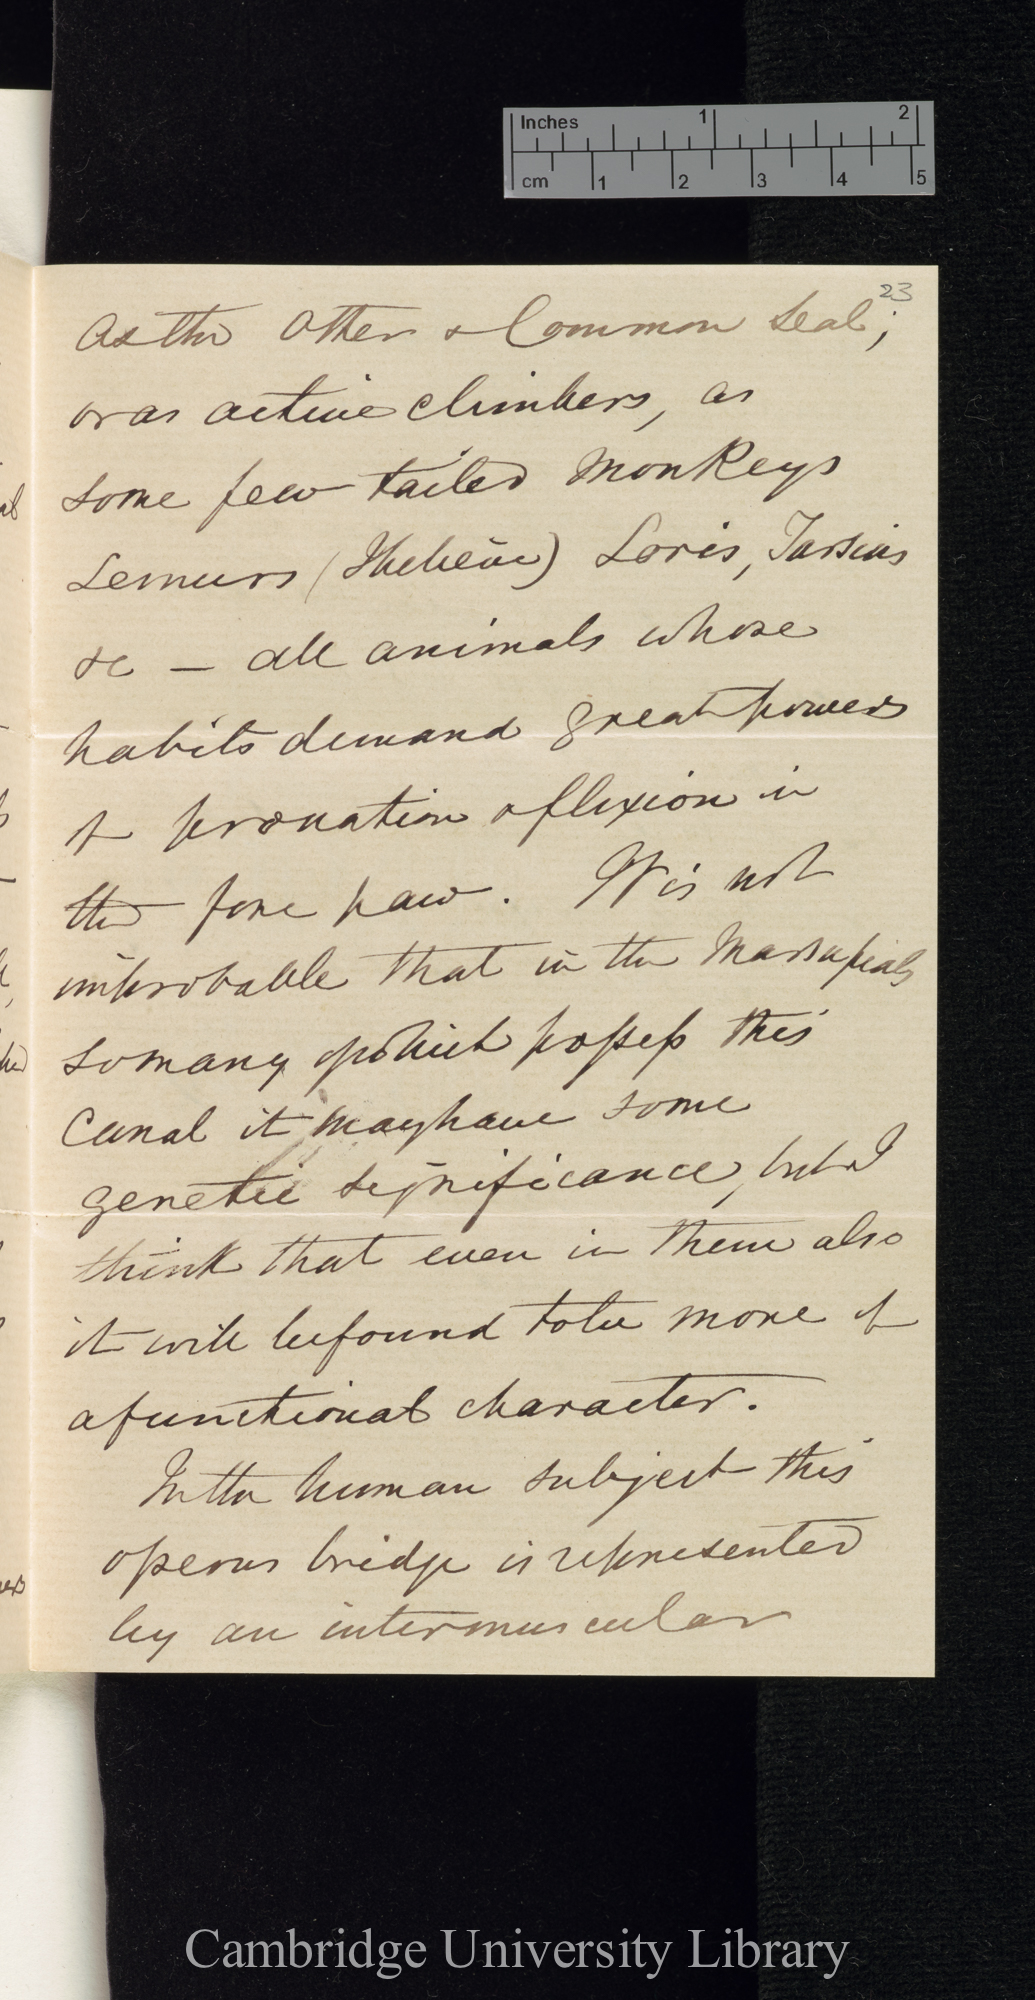 Inches 1 2
cm 1 2 3 4 5
23
as the Otter & Common Seal;
or as active climbers, as
some few tailed Monkeys
Lemurs ( ) Loris, Tarsius
&c — all animals whose
habits demand great powers
of pronation & flexion in
the fore paw. It is not
improbable that in the Marsupials
so many of which possess this
Canal it may have some
genetic significance, but I
think that even in them also
it will be found to be more of
a functional character.
In the human subject this
osseous bridge is represented
by an intermuscular
Cambridge University Library